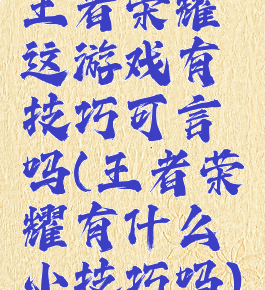 王者荣耀
这游戏有
技巧可言
吗(王者荣
耀有什么
小技巧吗)